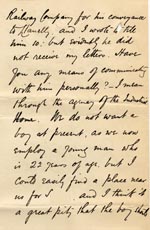 Railway Company for his conveyance
to Llanelly, and I wrote to tell
him so: but evidently he did
not receive my letter. Have
you any means of communicating
with him personally? — I mean
through the agency of the Industrial
Home. We do not want a
boy at present, as we now
employ a young man who
is 22 years of age, but I
could easily find a place near
us for I and I think it
a great pity that the boy that